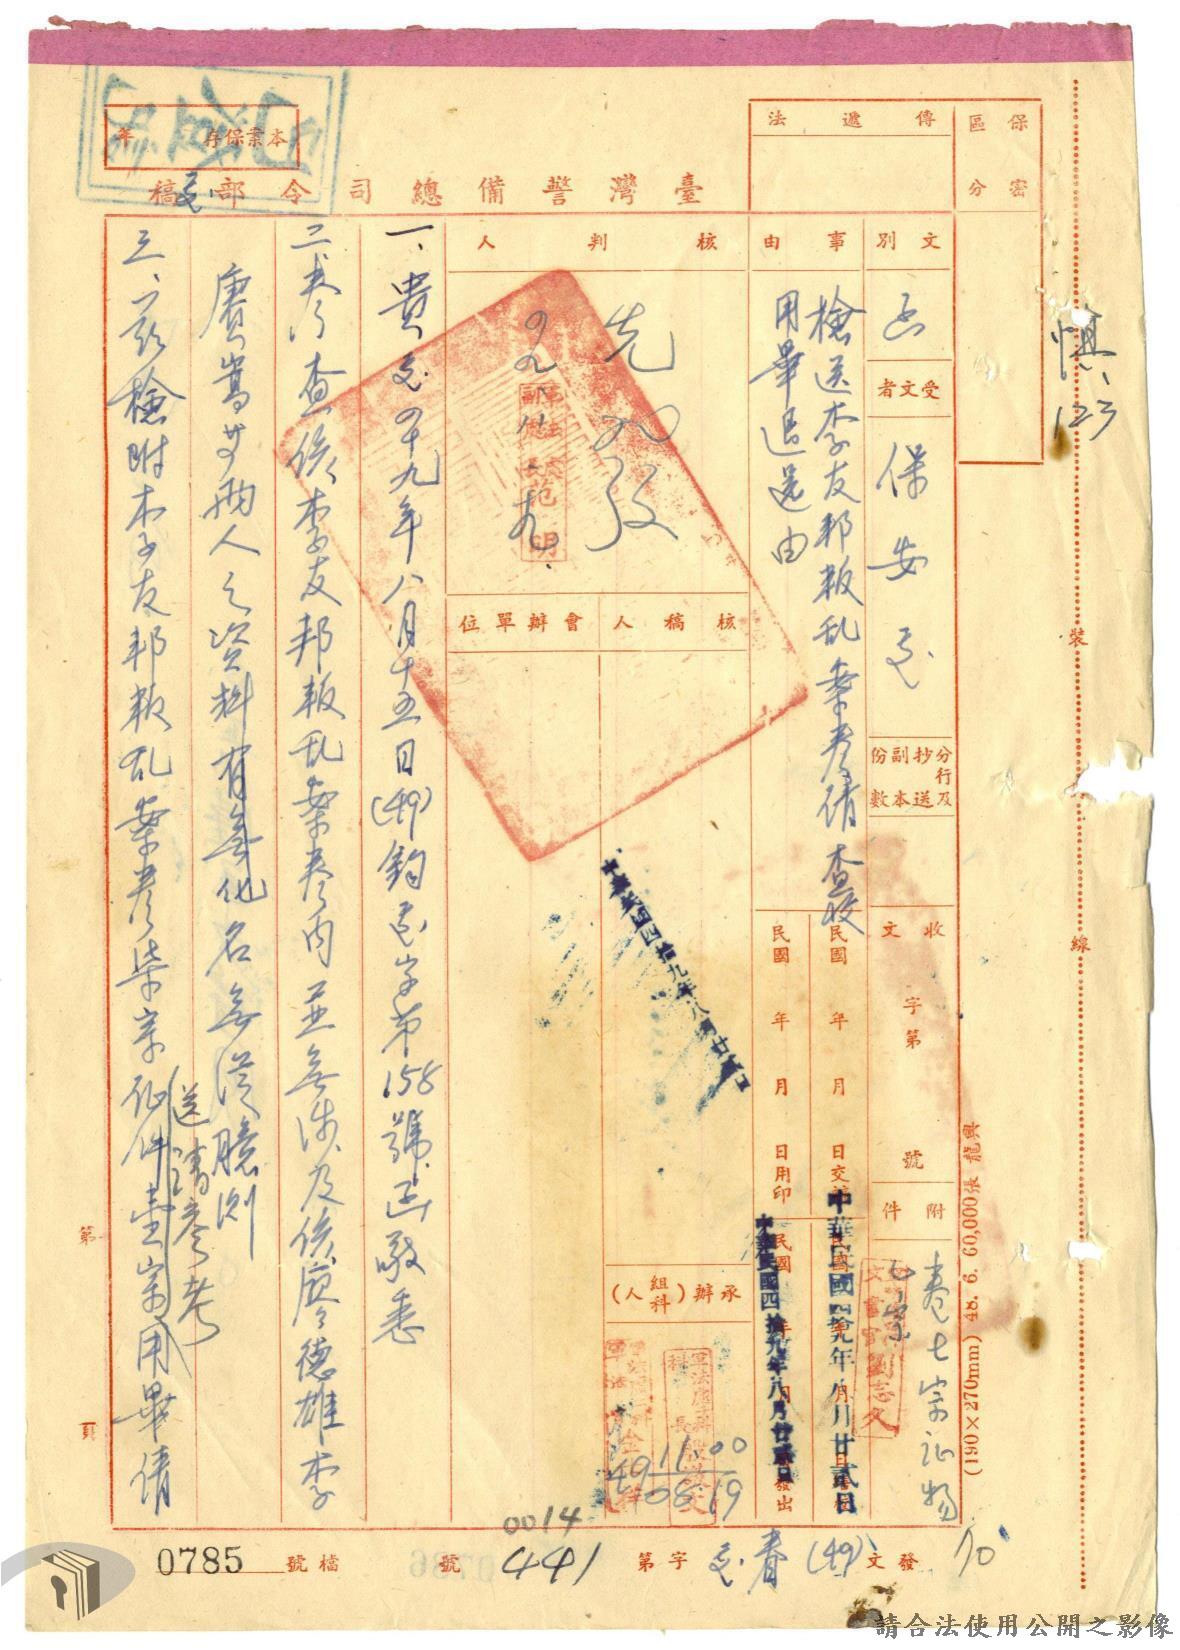 保密
區分
慎、
123
傳遞法
本案保存 年
臺灣警備總司令部 稿
文別
函
受文者
保安處
分行及抄送副本份數
收文 字第 號
附件
卷七宗証物
事由
檢送李友邦叛乱案卷請查收
用畢退還由
民國 年 月 日交
民國 年 月 日用印
中華民國四拾九年八月廿貳日
中華民國四拾九年八月廿貳日
發出
核判人
先發
范明
核稿人
會辦單位
中華民國四拾九年八月廿貳日
承辦(組科人)
軍法處
科長
11 00
49 08 19
一、貴處四十九年八月十五日(49)
字第158號函敬悉
二、卷查僅李友邦叛乱案卷內並無涉及侯廖德雄李
賡嵩廿兩人之資料有無化名無從臆測
三、茲檢附李友邦叛乱案卷柒宗証件壹宗用畢請
送請參考
裝
線
(190×270mm) 48. 6. 60,000張 龍興
第 頁
發文(49) 字第 0014
441 號
檔號 0785
請合法使用公開之影像